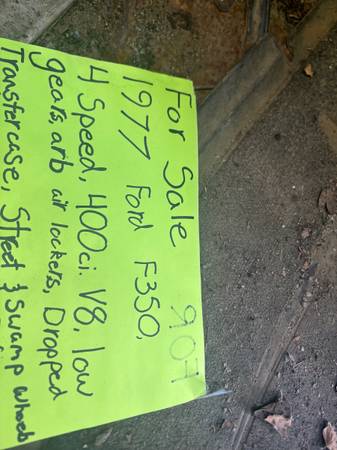 For Sale 907
1977 Ford F350,
4 Speed, 400ci. V8, low
gears, arb air lockers, Dropped
Transfercase, Street & Swamp wheels